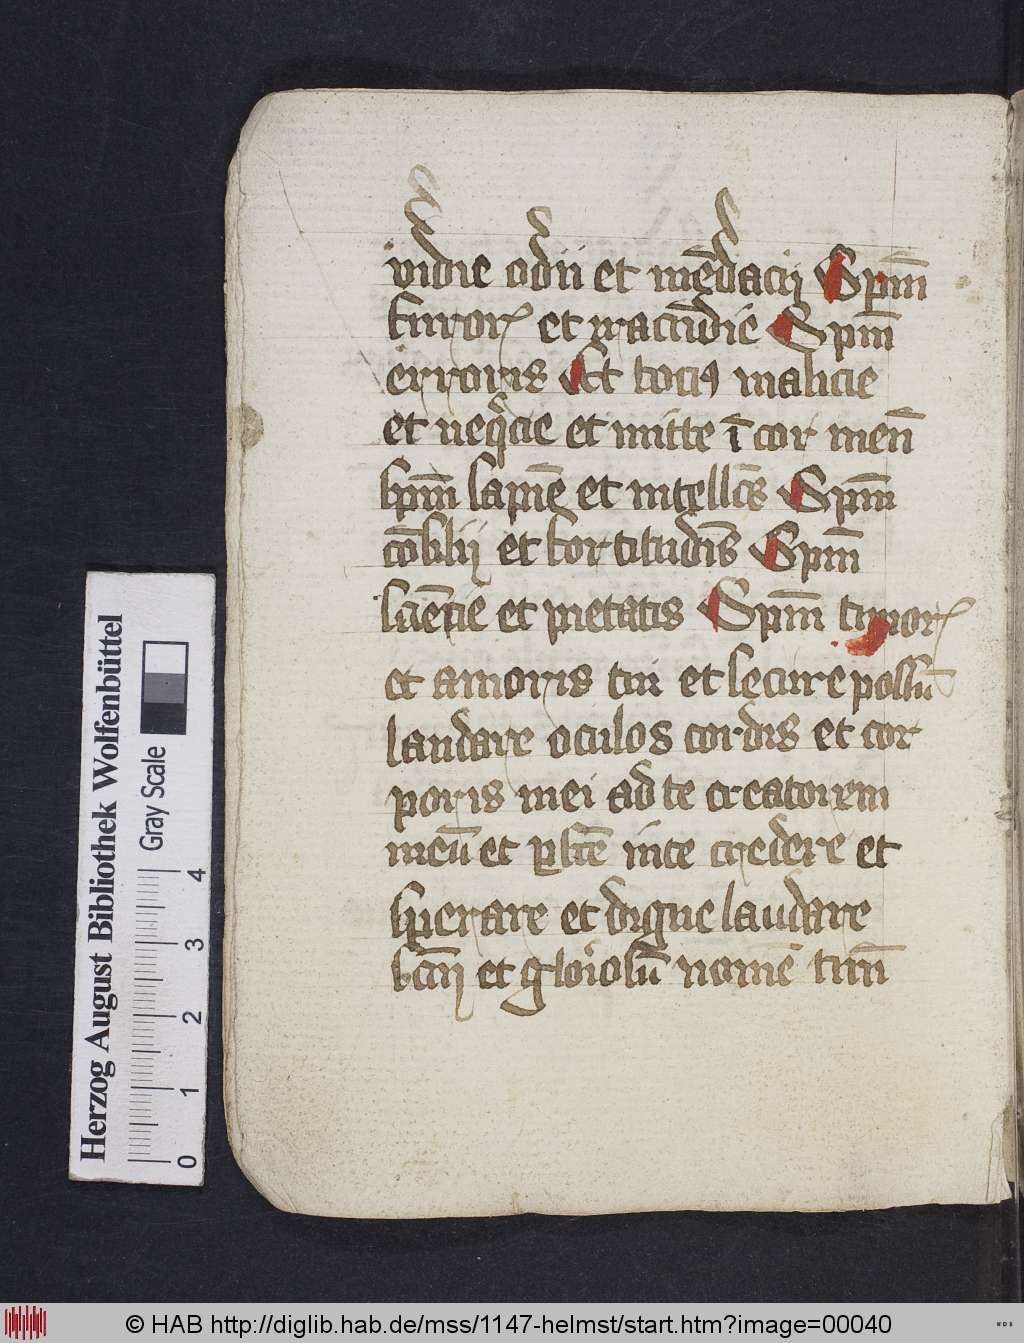 vidie odii et mēdacij Spm̄
furoris et iracūdie Spm̄
erroris Et tocius malicie
et neqͣcie et mitte ī cor meū
spm̄ sapiē et intellcs̄ Spm̄
cōsilij et fortitudīs Spm̄
sciētie et pietatis Spm̄ timoris
et amoris tui et secure possū
laudare oculos cordis et cor
poris mei ad te creatorem
meū et ꝑfcē in te credere et
sperare et digne laudare
scm̄ et gloꝛiosū nomē tuū
Herzog August Bibliothek Wolfenbüttel
Gray Scale
0 1 2 3 4
© HAB http://diglib.hab.de/mss/1147-helmst/start.htm?image=00040